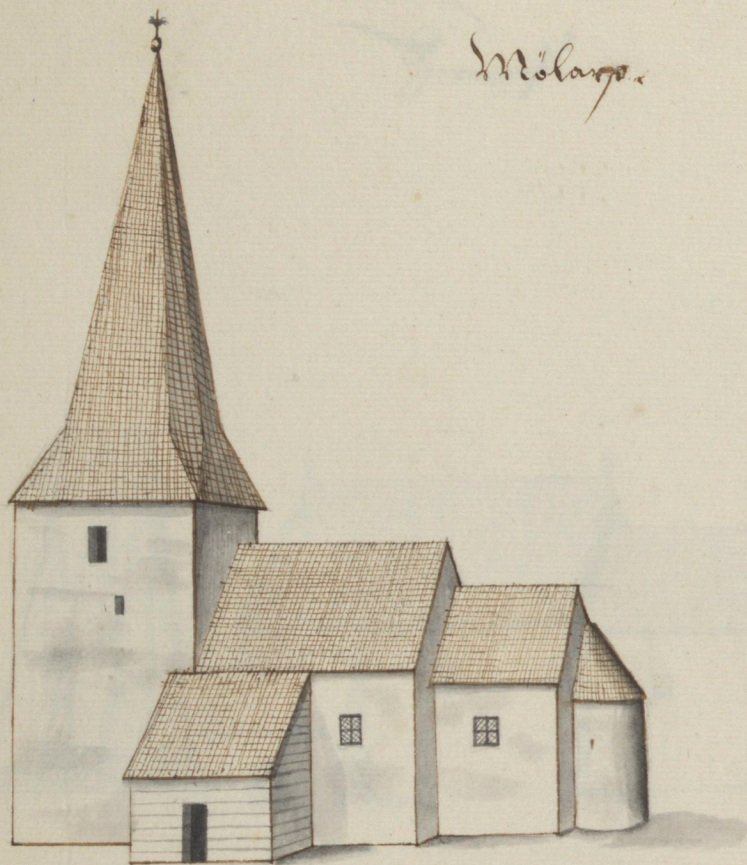 Mölarp.